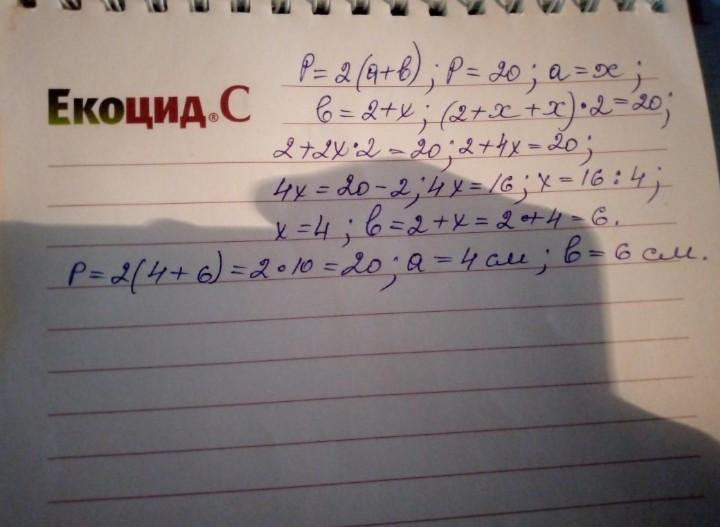 P = 2(a+в); P = 20; a = x;
Екоцид® С
в = 2+x; (2+x+x)·2 = 20;
2+2x·2 = 20; 2+4x = 20;
4x = 20-2; 4x = 16; x = 16:4;
x = 4; в = 2+x = 2+4 = 6.
P = 2(4+6) = 2·10 = 20; a = 4 см; в = 6 см.